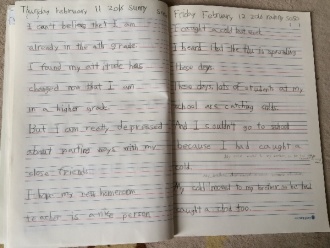 Thursday February 11 2016 sunny
I can't believe that I am
already in the 4th grade
I found my attitude has
changed now that I am
in a higher grade
But I am really depressed
about parting ways with my
close friends
I hope my new homeroom
teacher is a nice person
Friday February 12 2016 sunny
I caught a cold last week
I heard that the flu is spreading
these days
These days lots of students at my
school are catching colds
And I couldn't go to school
because I had caught a
cold.
My cold moved to my brother so he had
caught a cold too.